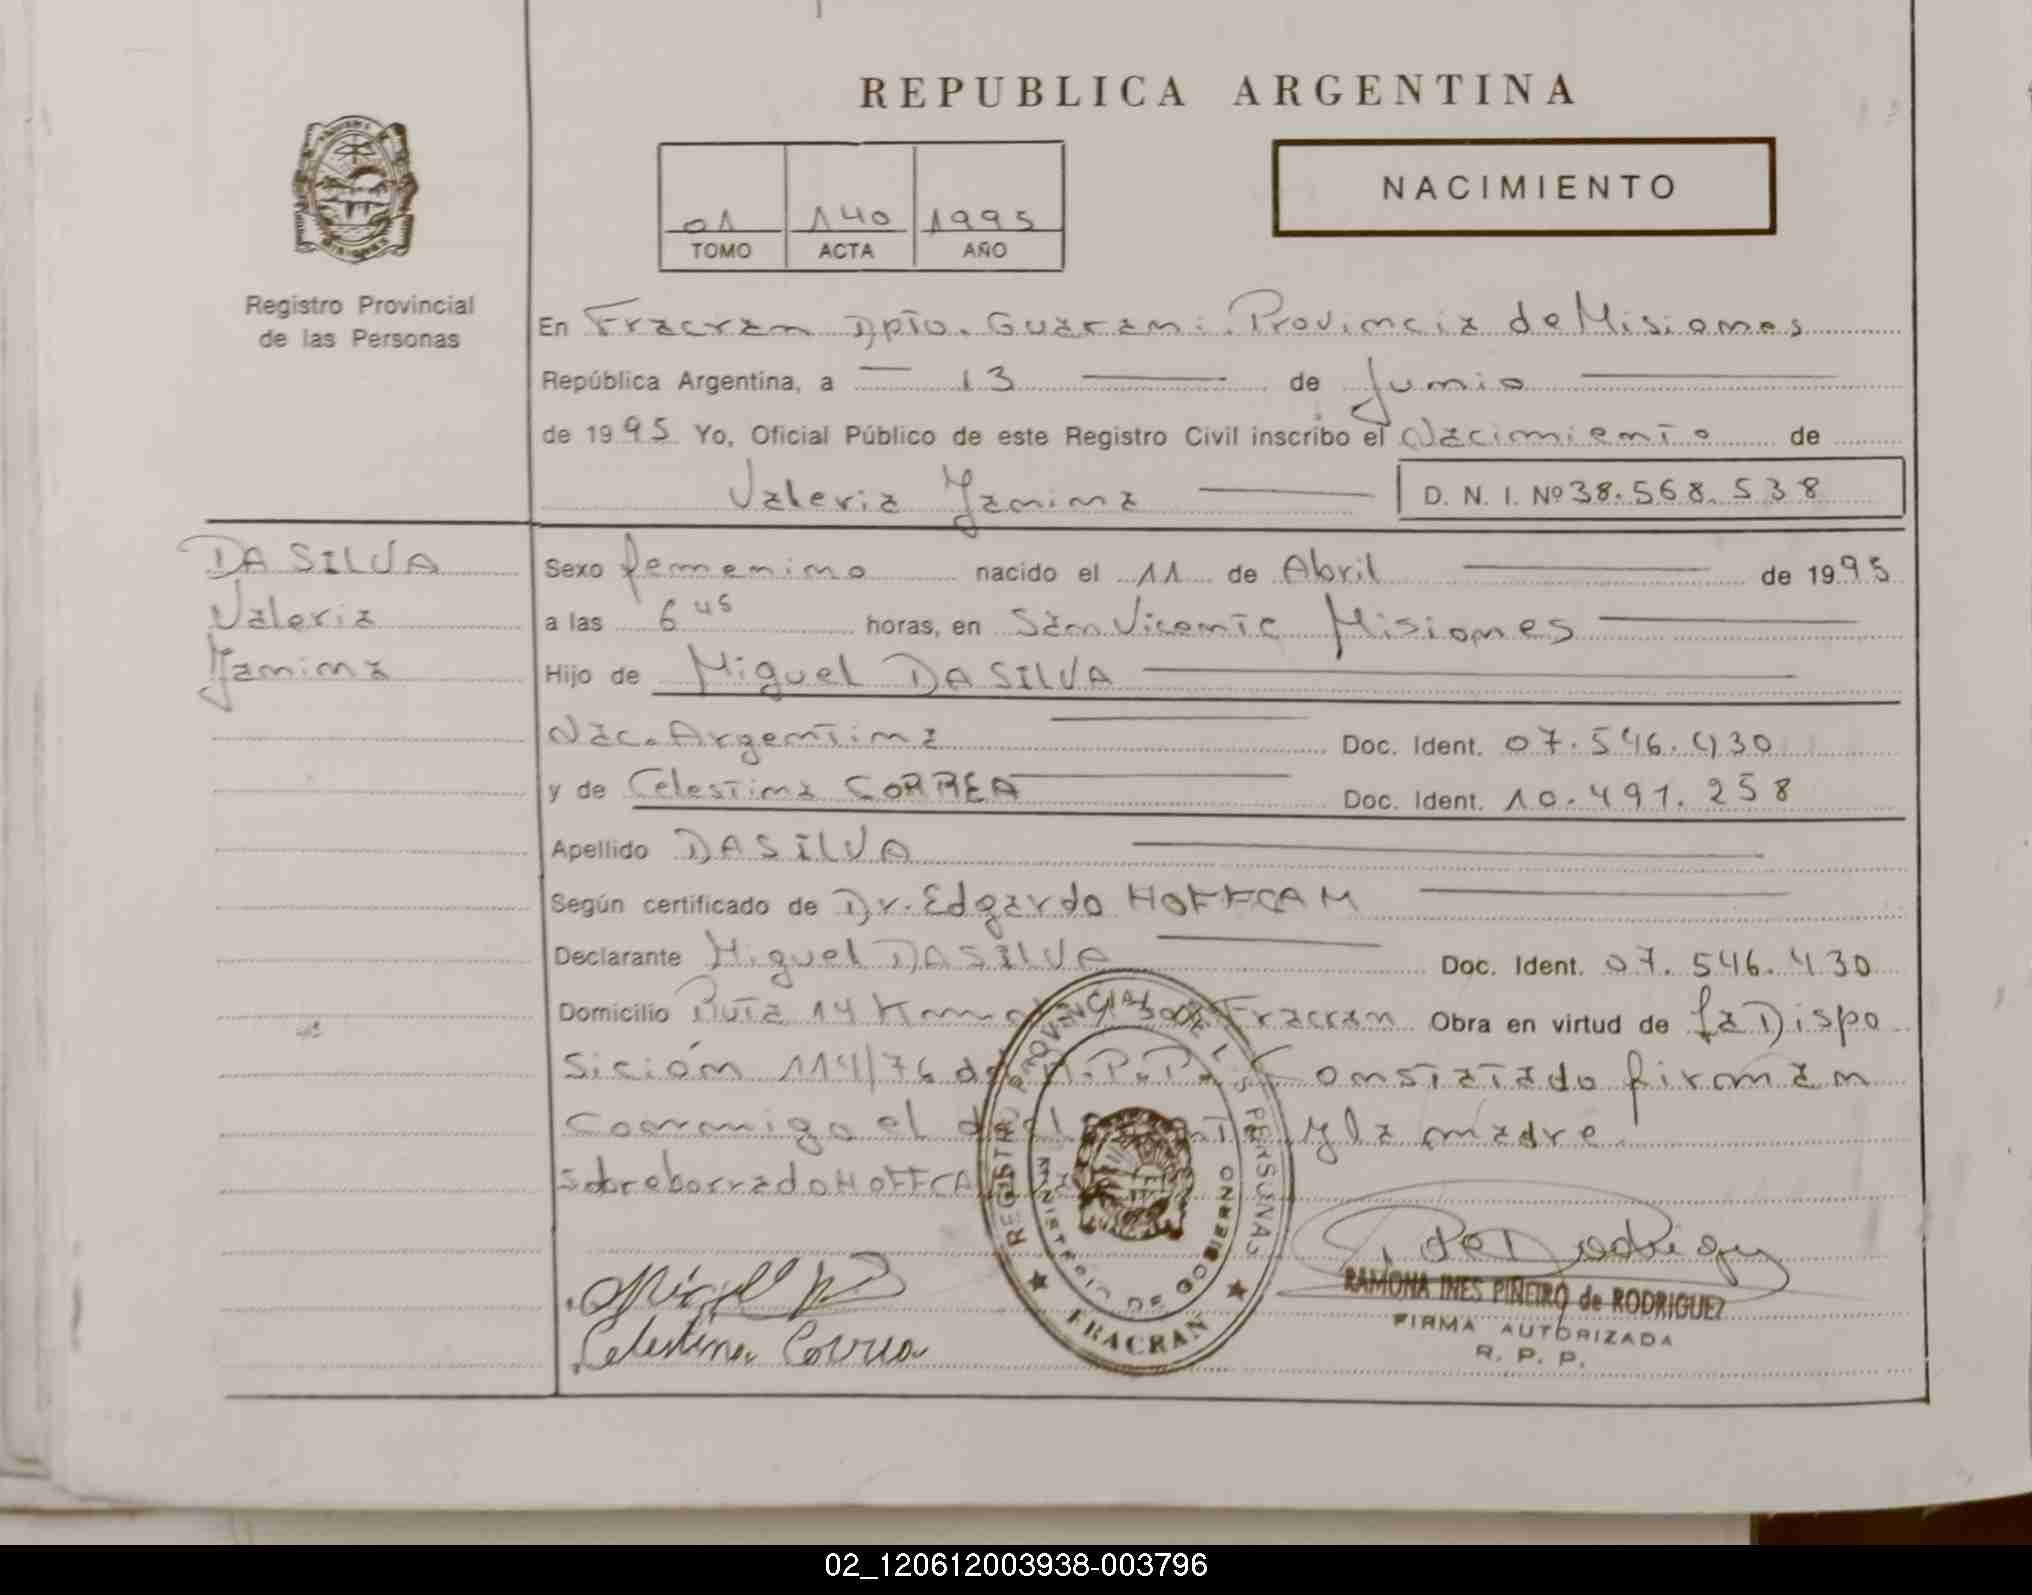 REPUBLICA ARGENTINA
01 140 1995
TOMO ACTA AÑO
NACIMIENTO
Registro Provincial
de las Personas
En Fracran Dpto. Guarani. Provincia de Misiones
República Argentina, a 13 de Junio
de 1995 Yo, Oficial Público de este Registro Civil inscribo el Nacimiento de
Valeria Yanina D. N. I. Nº 38.568.538
DA SILVA
Valeria
Yanina
Sexo femenino nacido el 11 de Abril de 1995
a las 6 45 horas, en San Vicente Misiones
Hijo de Miguel DA SILVA
Nac. Argentina Doc. Ident. 07.546.430
y de Celestina CORREA Doc. Ident. 10.491.258
Apellido DA SILVA
Según certificado de Dr. Edgardo HOFFCAM
Declarante Miguel DA SILVA Doc. Ident. 07.546.430
Domicilio Ruta 14 Fracran Obra en virtud de la Dispo
sición 114/76 del R.P.P. Constatado firman
conmigo el y la madre
Sobreborrado HOFFCA
REGISTRO PROVINCIAL DE LAS PERSONAS
MINISTERIO DE GOBIERNO
FRACRAN
Celestina Correa
RAMONA INES PIÑEIRO de RODRIGUEZ
FIRMA AUTORIZADA
R. P. P.
02_120612003938-003796